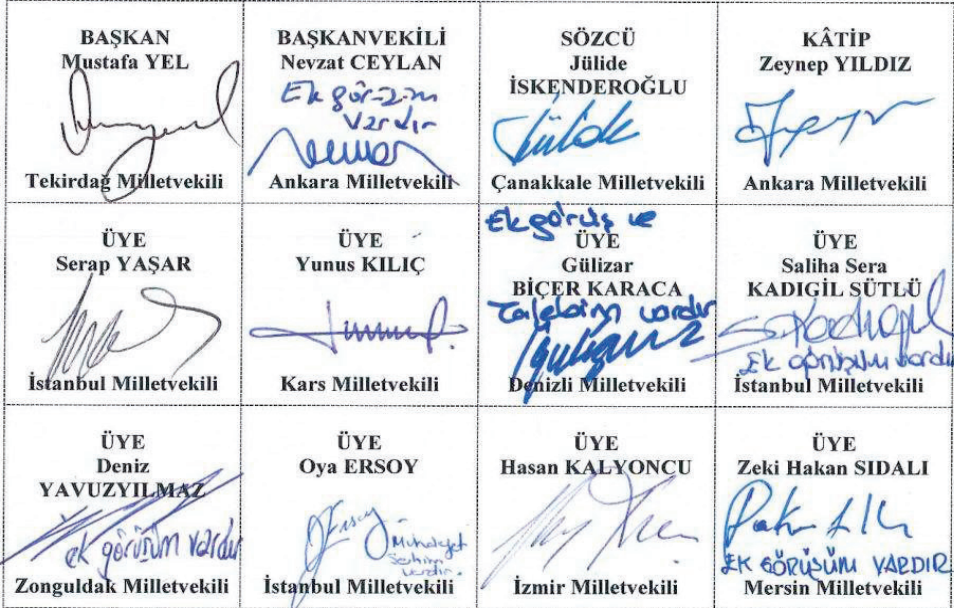 BAŞKAN
Mustafa YEL
Tekirdağ Milletvekili
BAŞKANVEKİLİ
Nevzat CEYLAN
Ek görüşüm
vardır
Ankara Milletvekili
SÖZCÜ
Jülide
İSKENDEROĞLU
Jülide
Çanakkale Milletvekili
KÂTİP
Zeynep YILDIZ
Ankara Milletvekili
ÜYE
Serap YAŞAR
İstanbul Milletvekili
ÜYE
Yunus KILIÇ
Kars Milletvekili
Ek görüş ve
ÜYE
Gülizar
BİÇER KARACA
Talebim vardır
Denizli Milletvekili
ÜYE
Saliha Sera
KADIGİL SÜTLÜ
Ek görüşüm vardır
İstanbul Milletvekili
ÜYE
Deniz
YAVUZYILMAZ
ek görüşüm vardır
Zonguldak Milletvekili
ÜYE
Oya ERSOY
Muhalefet
Şerhim
vardır.
İstanbul Milletvekili
ÜYE
Hasan KALYONCU
İzmir Milletvekili
ÜYE
Zeki Hakan SIDALI
EK GÖRÜŞÜM VARDIR
Mersin Milletvekili